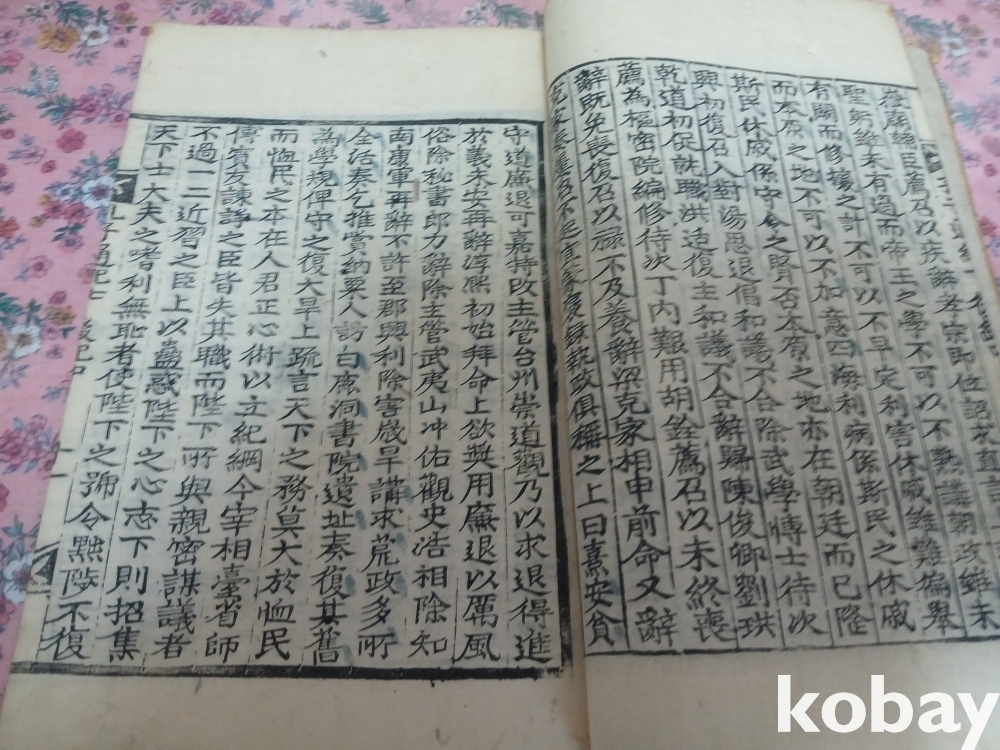 臣薦召以疾辭孝宗即位詔求直言
聖躬雖未有過而帝王之學不可以不熟講朝政雖未
有闕而修攘之計不可以不早定利害休戚雖難徧舉
而本原之地不可以不加意四海利病係斯民之休戚
斯民休戚係守令之賢否本原之地亦在朝廷而已隆
興初復召入對湯思退倡和議不合除武學博士待次
乾道初促就職洪适復主和議不合辭歸陳俊卿劉珙
薦為樞密院編修待次丁內艱用胡銓薦召以未終喪
辭既免喪復召以祿不及養辭梁克家相申前命又辭
克家奏熹屢召不起宜蒙褒錄執政俱稱之上曰熹安貧
守道廉退可嘉特改主管台州崇道觀乃以求退得進
於義未安再辭淳熙初始拜命上欲奬用廉退以厲風
俗除秘書郎力辭除主管武夷山冲佑觀史浩相除知
南康軍再辭不許至郡興利除害歲旱講求荒政多所
全活奏乞推賞納粟人訪白鹿洞書院遺址奏復其舊
為學規俾守之復大旱上疏言天下之務莫大於恤民
而恤民之本在人君正心術以立紀綱今宰相臺省師
傅賓友諫諍之臣皆失其職而陛下所與親密謀議者
不過一二近習之臣上以蠱惑陛下之心志下則招集
天下士大夫之嗜利無恥者使陛下之號令黜陟不復
kobay